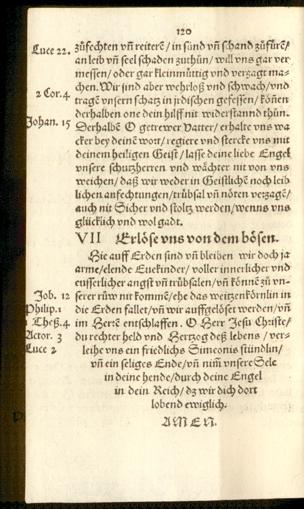 120
Luce 22. züfechten vñ reiterē / in sünd vñ schand züfürē /
an leib vñ seel schaden zuthün / will vns gar ver
messen / oder gar kleinmüttig vnd verzagt ma-
chen. Wir sind aber wehrloß vnd schwach / vnd
2 Cor. 4 tragē vnsern schatz in jrdischen gefessen / köñen
derhalben one dein hilff nit widerstannd thün.
Johan. 15 Derhalbē O getrewer Vatter / erhalte vns wa
cker bey deinē wort / regiere vnd stercke vns mit
deinem heiligen Geist / lasse deine liebe Engel
vnsere schutzherren vnd wächter nit von vns
weichen / daß wir weder in Geistlichē noch leib
lichen anfechtungen / trübsal vñ nöten verzagē /
auch nit Sicher vnd stoltz werden / wenns vns
glücklich vnd wol gadt.
VII Erlöse vns von dem bösen.
Hie auff Erden sind vñ bleiben wir doch ja
arme / elende Euekinder / voller innerlicher vnd
eusserlicher angst vñ trübsalen / vñ könnē zü vn-
Job. 12 serer rüw nit kommē / ehe das weitzenkörnlin in
Philip. 1 die Erden fallet / vñ wir auffgelöset werden / vñ
1 Theß. 4 im Hertē entschlaffen. O Herr Jesu Christe /
Actor. 3 du rechter held vnd Hertzog deß lebens / ver-
Luce 2 leihe vns ein friedlichs Simeonis stündlin /
vñ ein seliges Ende / vñ nim̃ vnsere Sele
in deine hende / durch deine Engel
in dein Reich / dz wir dich dort
lobend ewiglich.
AMEN.